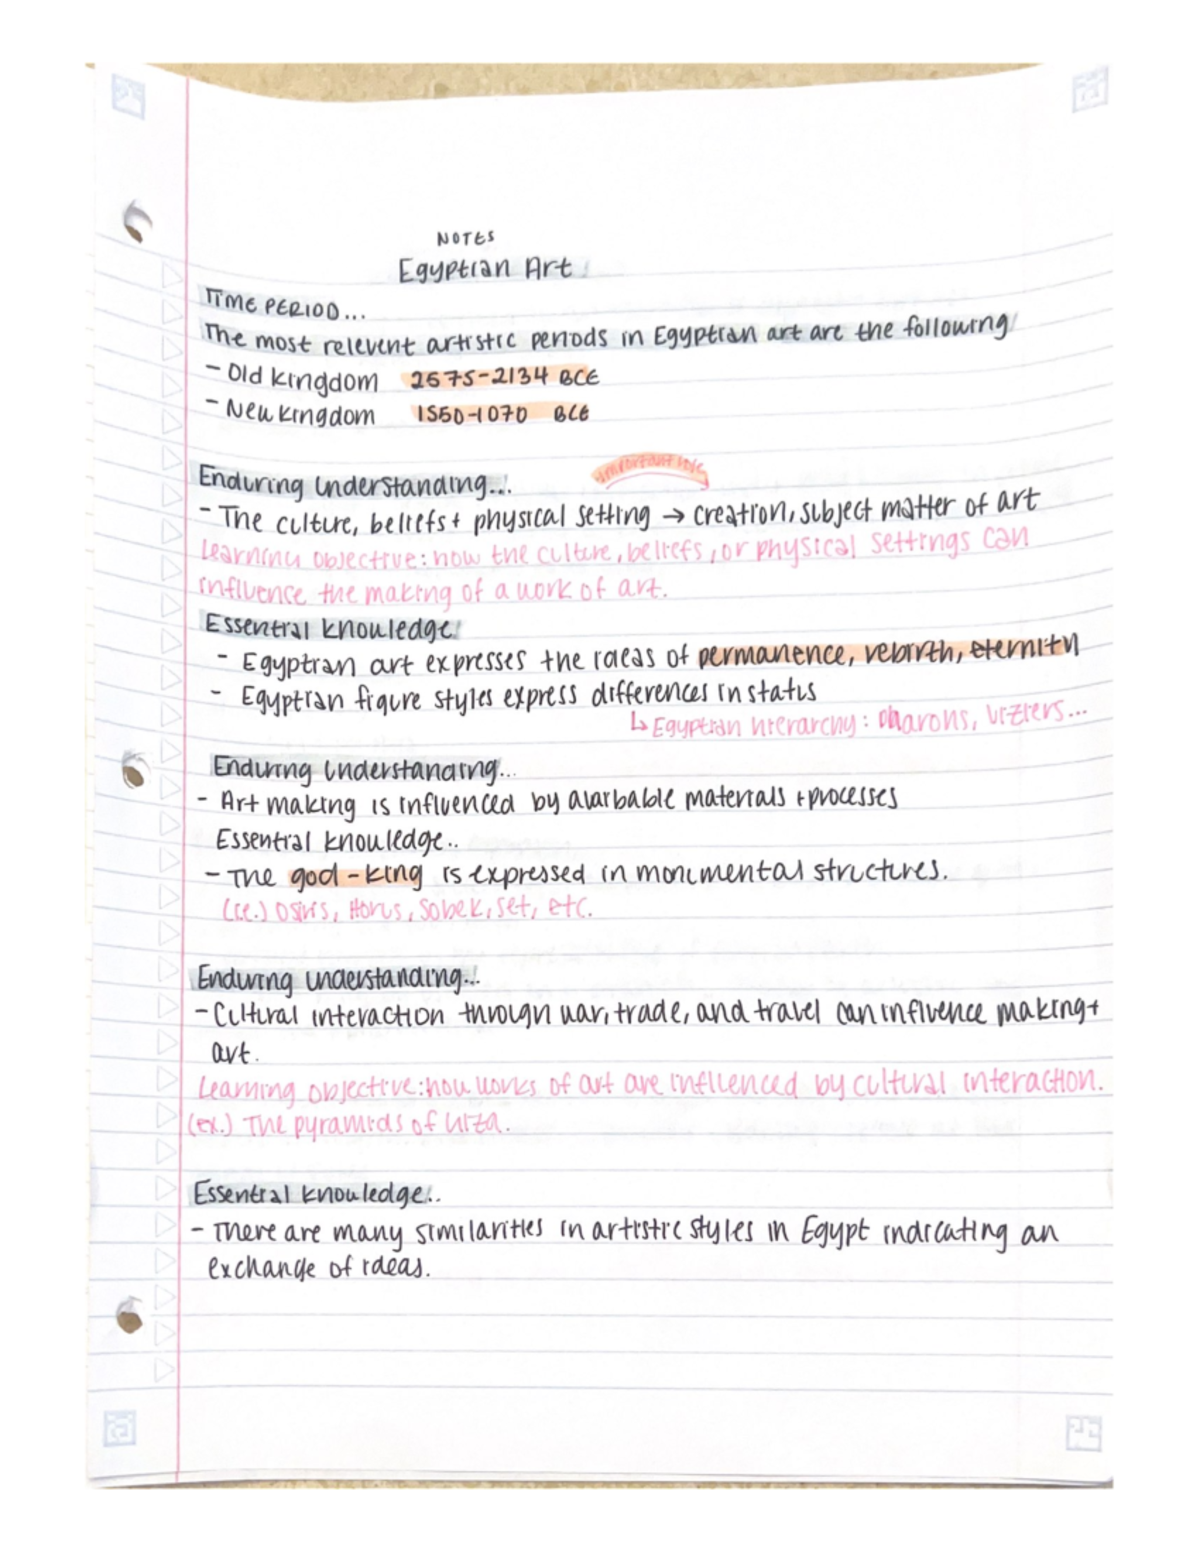 NOTES
Egyptian Art
TIME PERIOD...
The most relevent artistic periods in Egyptian art are the following
- Old Kingdom 2575-2134 BCE
- New Kingdom 1550-1070 BCE
important role
Enduring Understanding...
- The culture, beliefs + physical setting → creation, subject matter of art
Learning objective: how the culture, beliefs, or physical settings can
influence the making of a work of art.
Essential knowledge
- Egyptian art expresses the ideas of permanence, rebirth, eternity
- Egyptian figure styles express differences in status
↳ Egyptian hierarchy: pharohs, viziers...
Enduring Understanding...
- Art making is influenced by avaibable materials + processes
Essential knowledge..
- The god-king is expressed in monumental structures.
(ie.) Osiris, Horus, Sobek, Set, etc.
Enduring understanding...
- Cultural interaction through war, trade, and travel can influence making +
art.
Learning objective: how works of art are influenced by cultural interaction.
(ex.) The pyramids of Giza.
Essential knowledge..
- There are many similarities in artistic styles in Egypt indicating an
exchange of ideas.